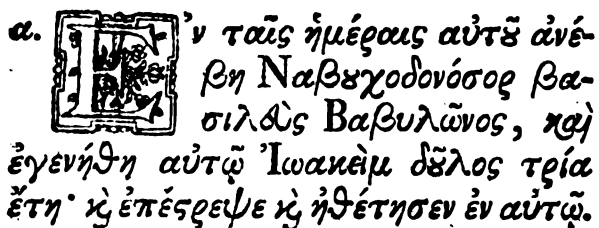 α. Ἐν ταῖς ἡμέραις αὐτοῦ ἀνέ-
βη Ναβουχοδονόσορ βα-
σιλεὺς Βαβυλῶνος, καὶ
ἐγενήθη αὐτῷ Ἰωακεὶμ δοῦλος τρία
ἔτη· κỳ ἐπέστρεψε κỳ ἠθέτησεν ἐν αὐτῷ.